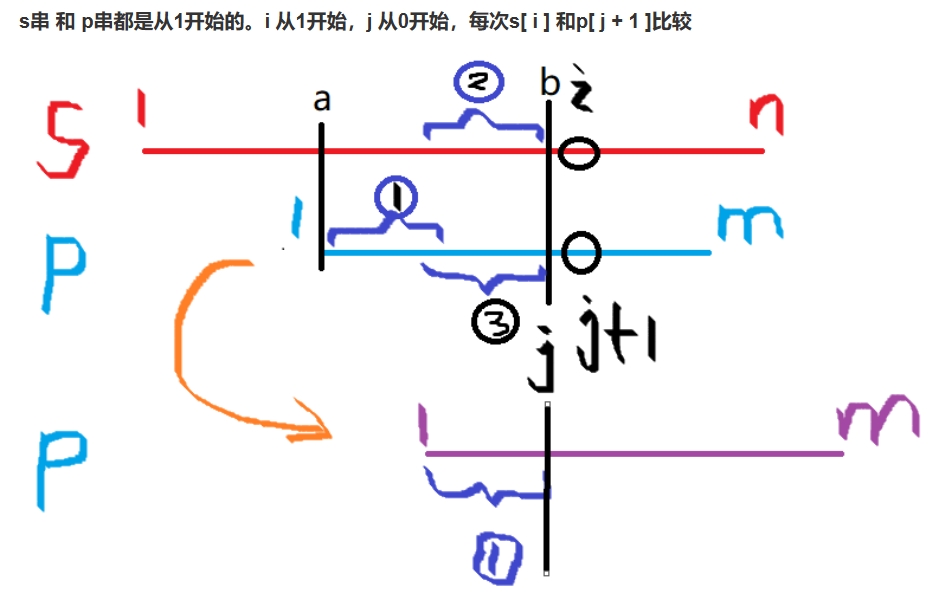 s串 和 p串都是从1开始的。i 从1开始，j 从0开始，每次s[ i ] 和p[ j + 1 ]比较
S 1 a ② b i n
P 1 ① m
③ j j+1
P 1 m
1